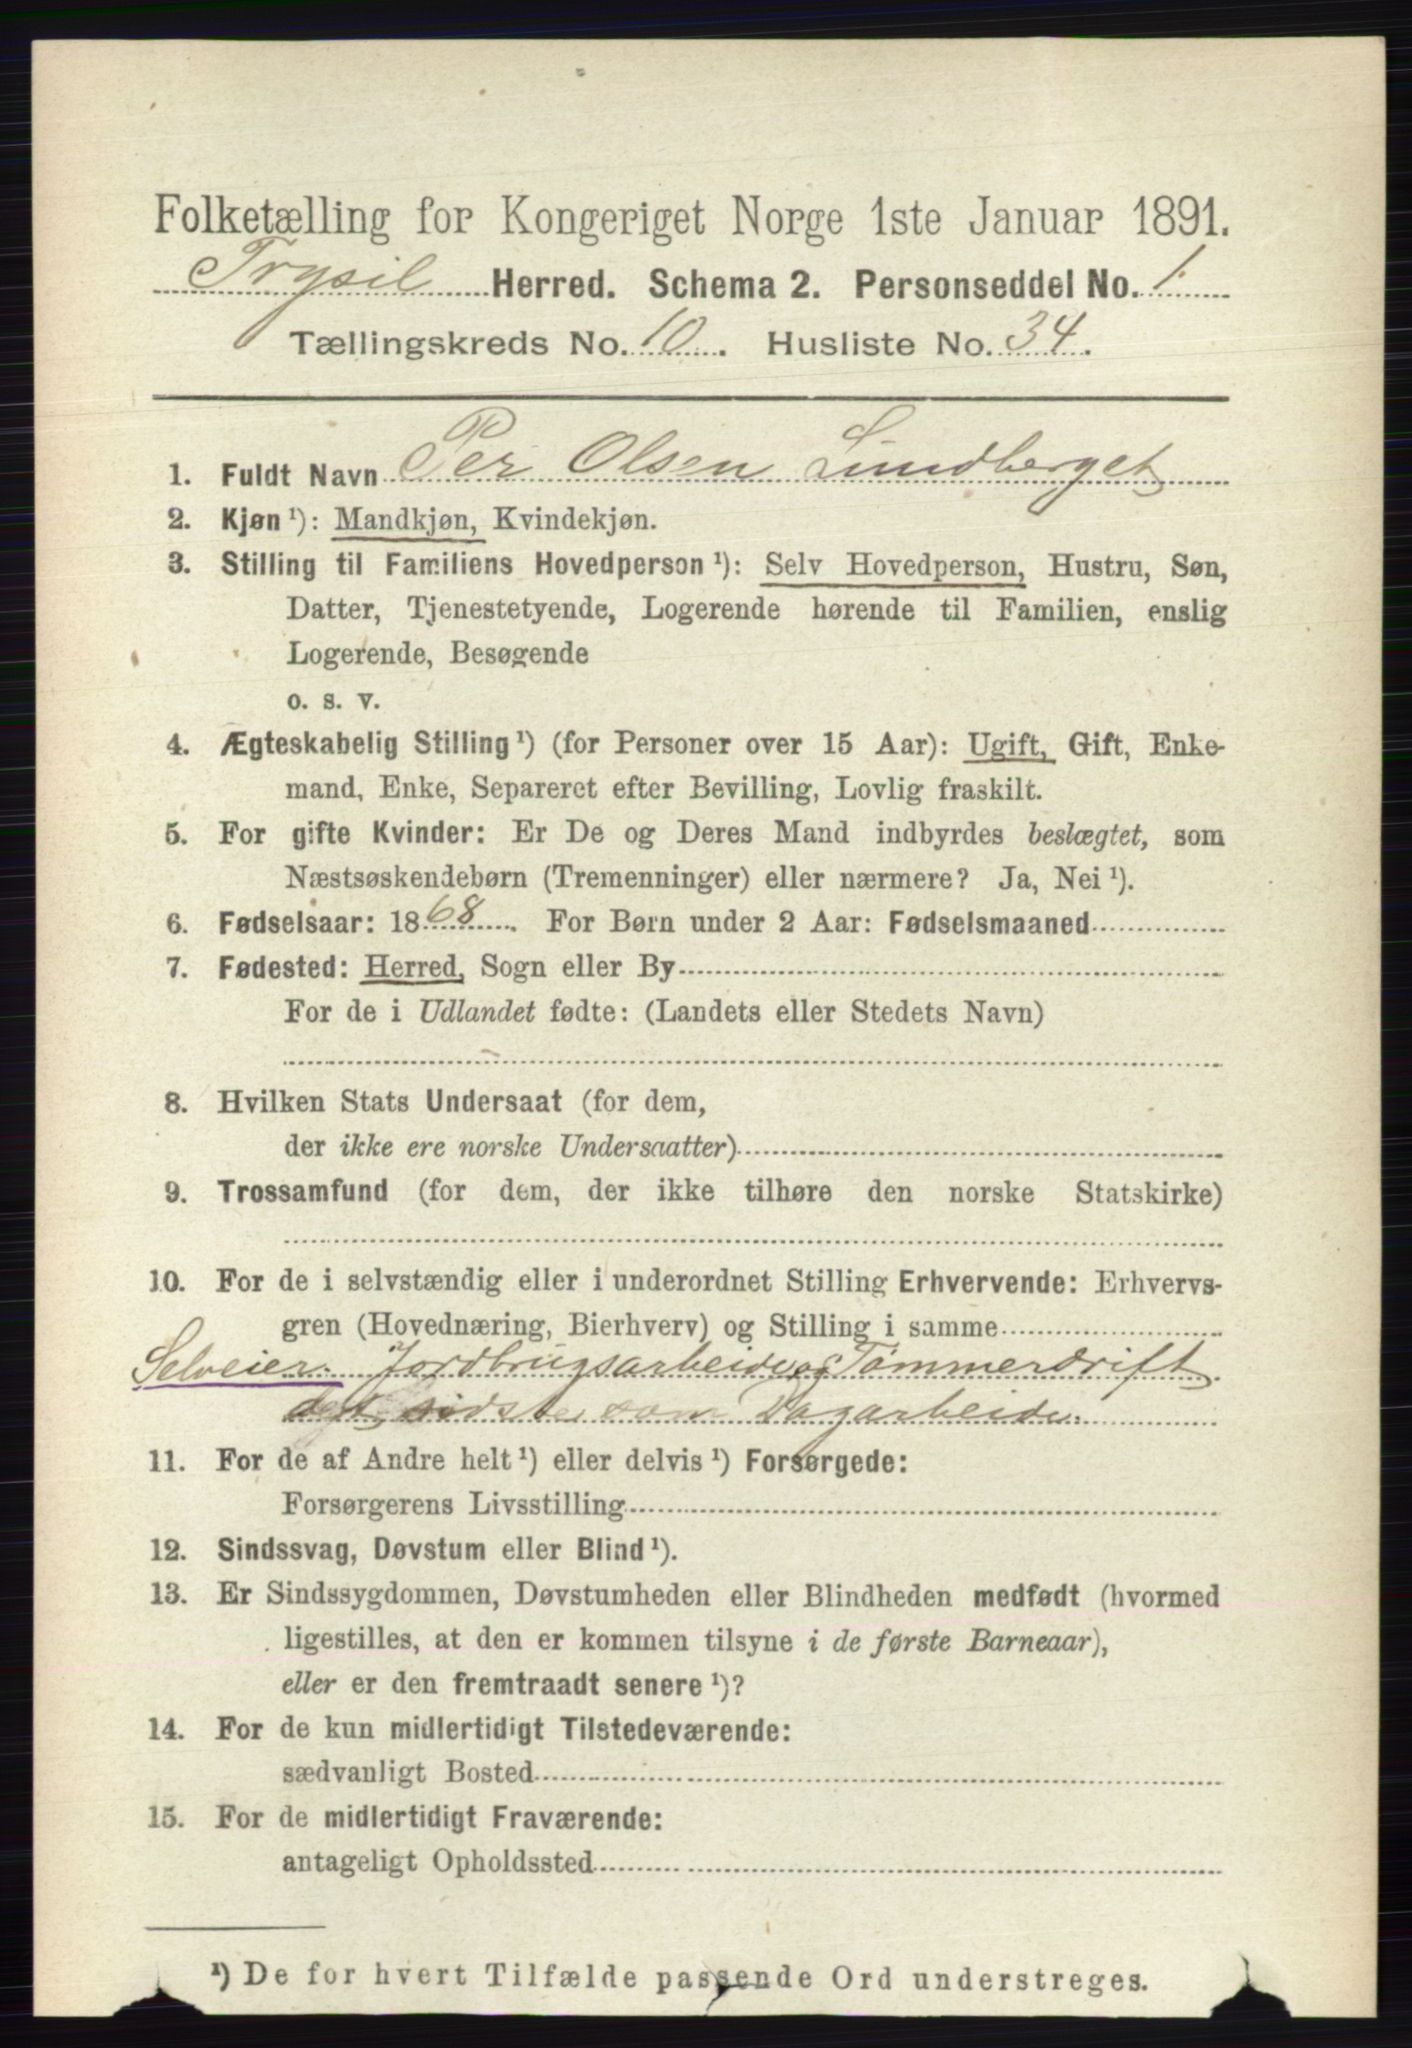 Folketælling for Kongeriget Norge 1ste Januar 1891.
Trysil Herred. Schema 2. Personseddel No. 1.
Tællingskreds No. 10. Husliste No. 34.
1. Fuldt Navn Per Olsen Lundberget
2. Kjøn ¹): Mandkjøn, Kvindekjøn.
3. Stilling til Familiens Hovedperson ¹): Selv Hovedperson, Hustru, Søn,
Datter, Tjenestetyende, Logerende hørende til Familien, enslig
Logerende, Besøgende
o. s. v.
4. Ægteskabelig Stilling ¹) (for Personer over 15 Aar): Ugift, Gift, Enke-
mand, Enke, Separeret efter Bevilling, Lovlig fraskilt.
5. For gifte Kvinder: Er De og Deres Mand indbyrdes beslægtet, som
Næstsøskendebørn (Tremenninger) eller nærmere? Ja, Nei ¹).
6. Fødselsaar: 1868. For Børn under 2 Aar: Fødselsmaaned
7. Fødested: Herred, Sogn eller By
For de i Udlandet fødte: (Landets eller Stedets Navn)
8. Hvilken Stats Undersaat (for dem,
der ikke ere norske Undersaatter)
9. Trossamfund (for dem, der ikke tilhøre den norske Statskirke)
10. For de i selvstændig eller i underordnet Stilling Erhvervende: Erhvervs-
gren (Hovednæring, Bierhverv) og Stilling i samme
Selveier. Jordbrugsarbeide og Tømmerdrift
det sidste som Dagarbeider
11. For de af Andre helt ¹) eller delvis ¹) Forsørgede:
Forsørgerens Livsstilling
12. Sindssvag, Døvstum eller Blind ¹).
13. Er Sindssygdommen, Døvstumheden eller Blindheden medfødt (hvormed
ligestilles, at den er kommen tilsyne i de første Barneaar),
eller er den fremtraadt senere ¹)?
14. For de kun midlertidigt Tilstedeværende:
sædvanligt Bosted
15. For de midlertidigt Fraværende:
antageligt Opholdssted
¹) De for hvert Tilfælde passende Ord understreges.